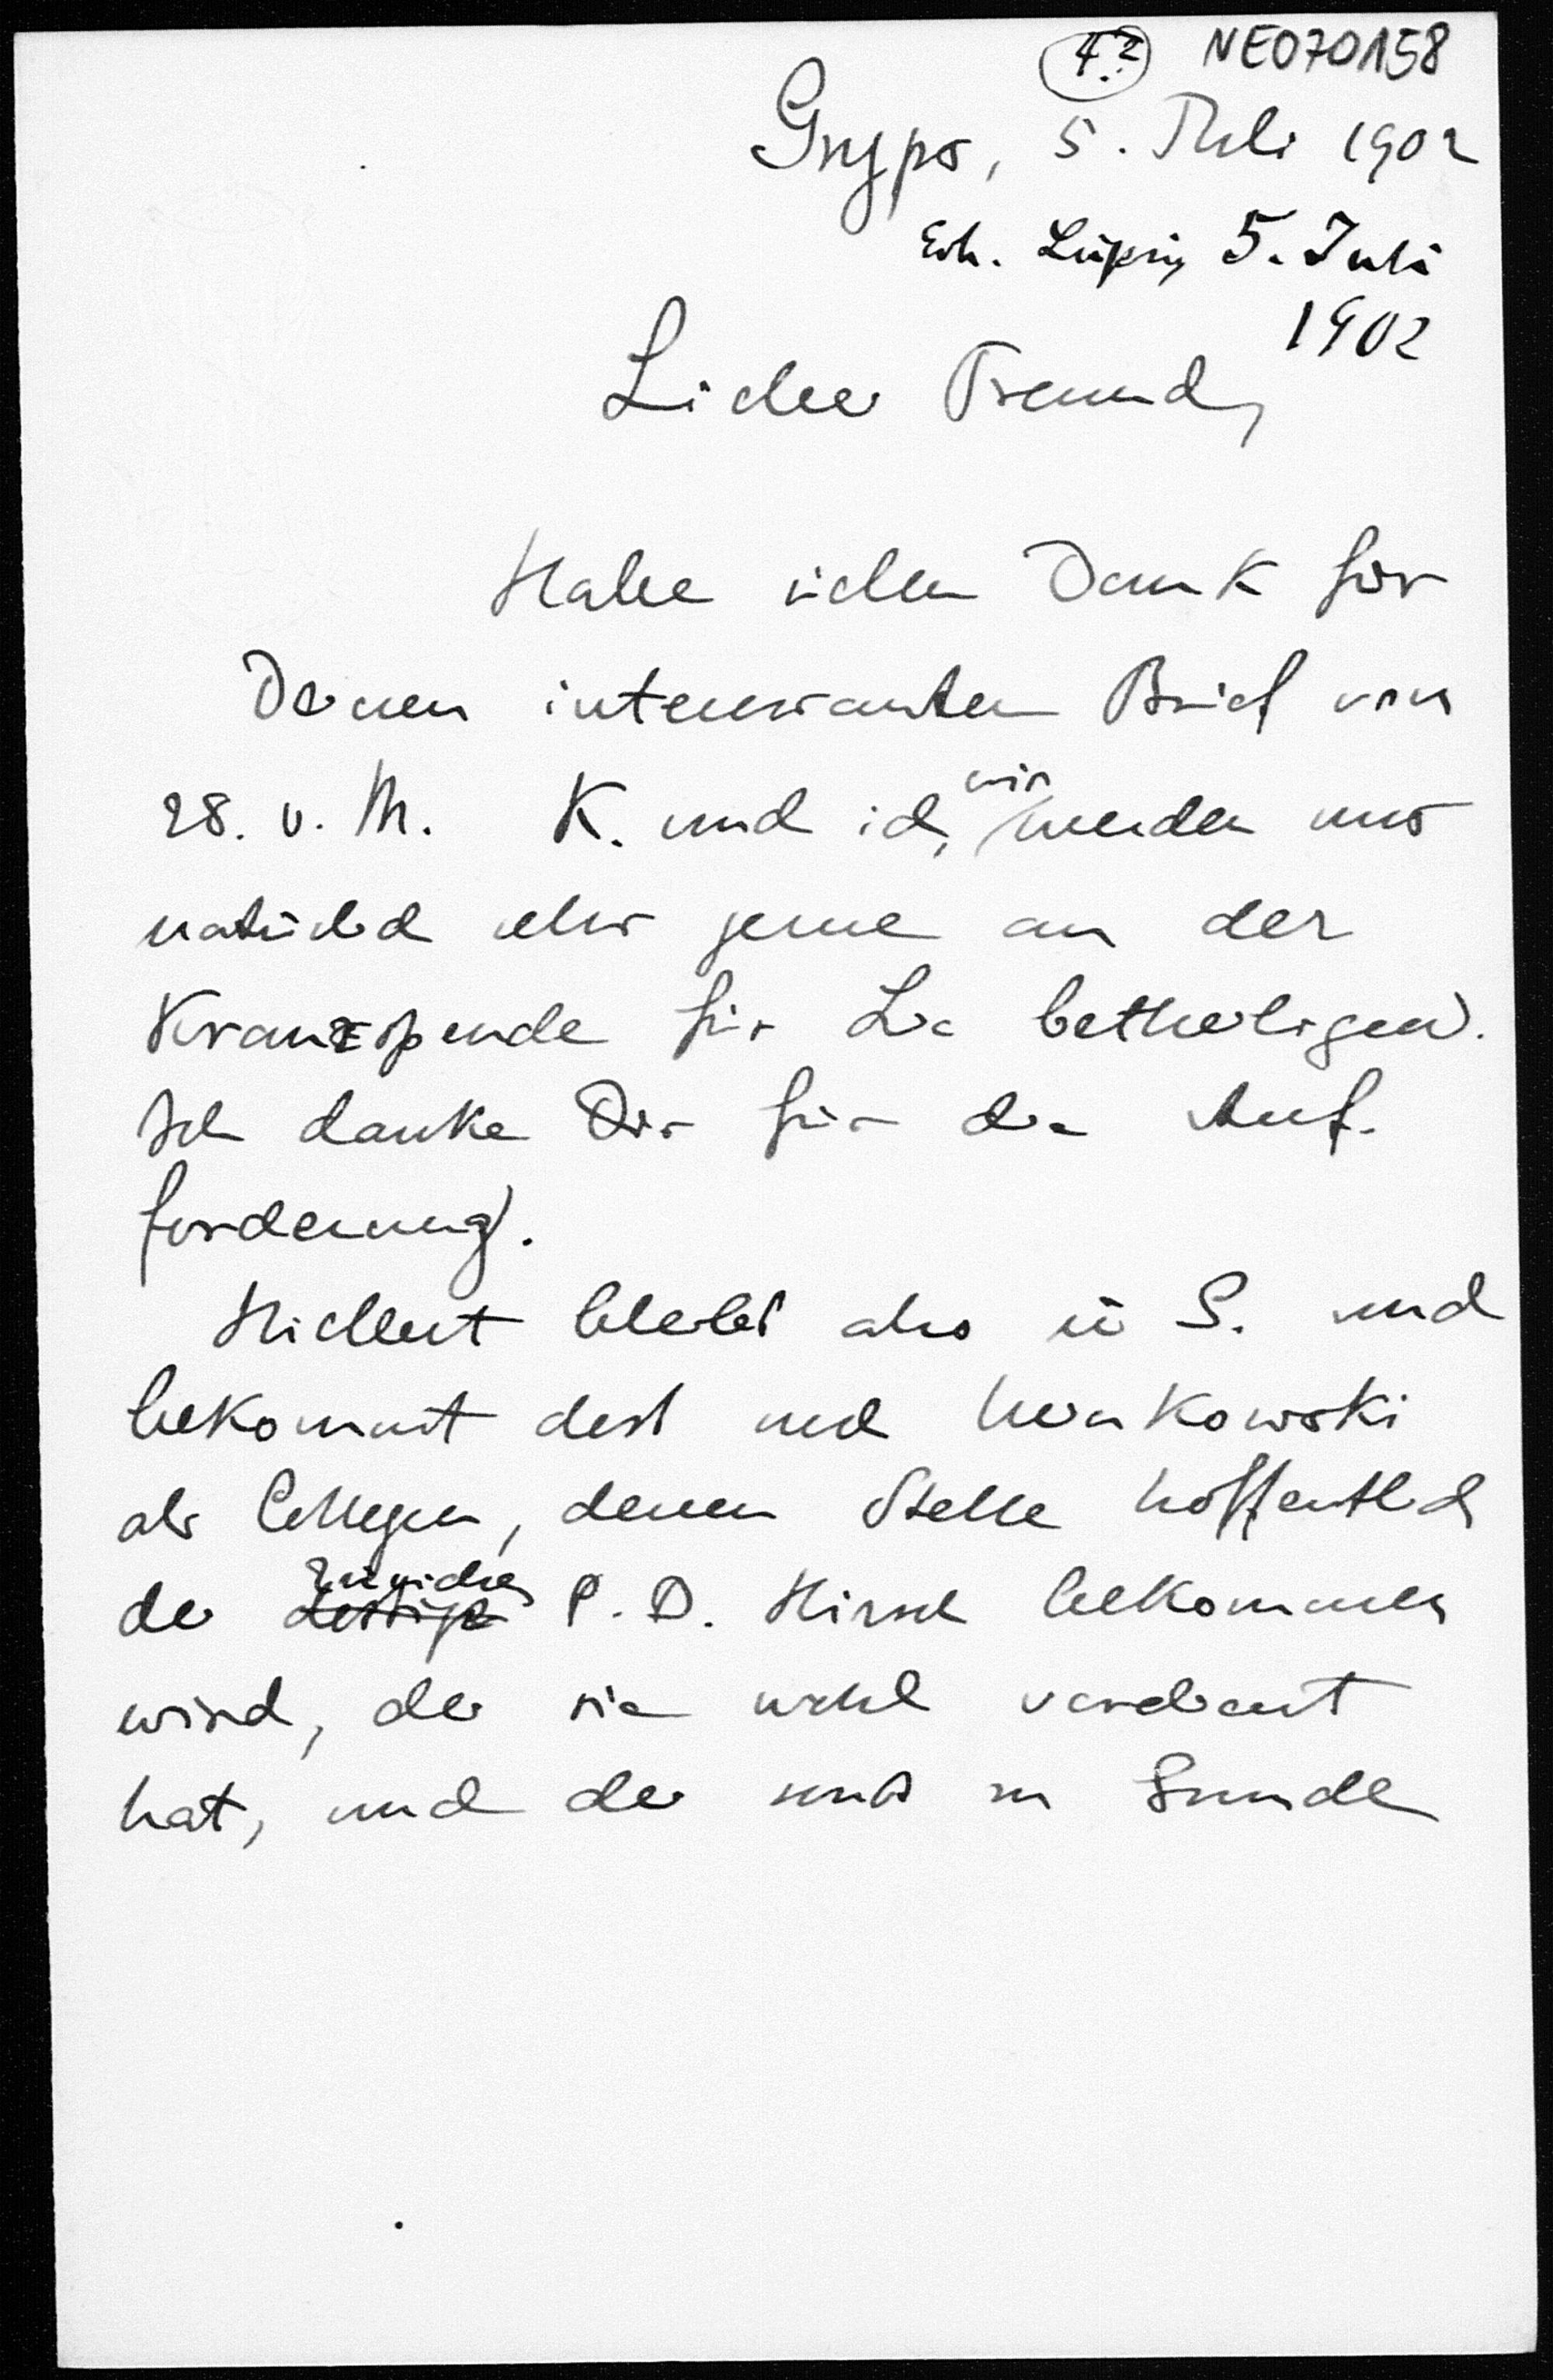 4.2 NE070158
Gryps, 5. Juli 1902
Erh. Leipzig 5. Juli
1902
Lieber Freund,
Habe vielen Dank für
Deinen interessanten Brief vom
28. v. M. K. und ich, wir werden uns
natürlich sehr gerne an der
Kranzspende für Lie betheiligen.
Ich danke Dir für die Auf-
forderung.
Hilbert bleibt also in G. und
bekommt dort noch Minkowski
als Collegen, dessen Stelle hoffentlich
der Züricher P. D. Hirsch bekommen
wird, der sie wohl verdient
hat, und der sonst zu Grunde